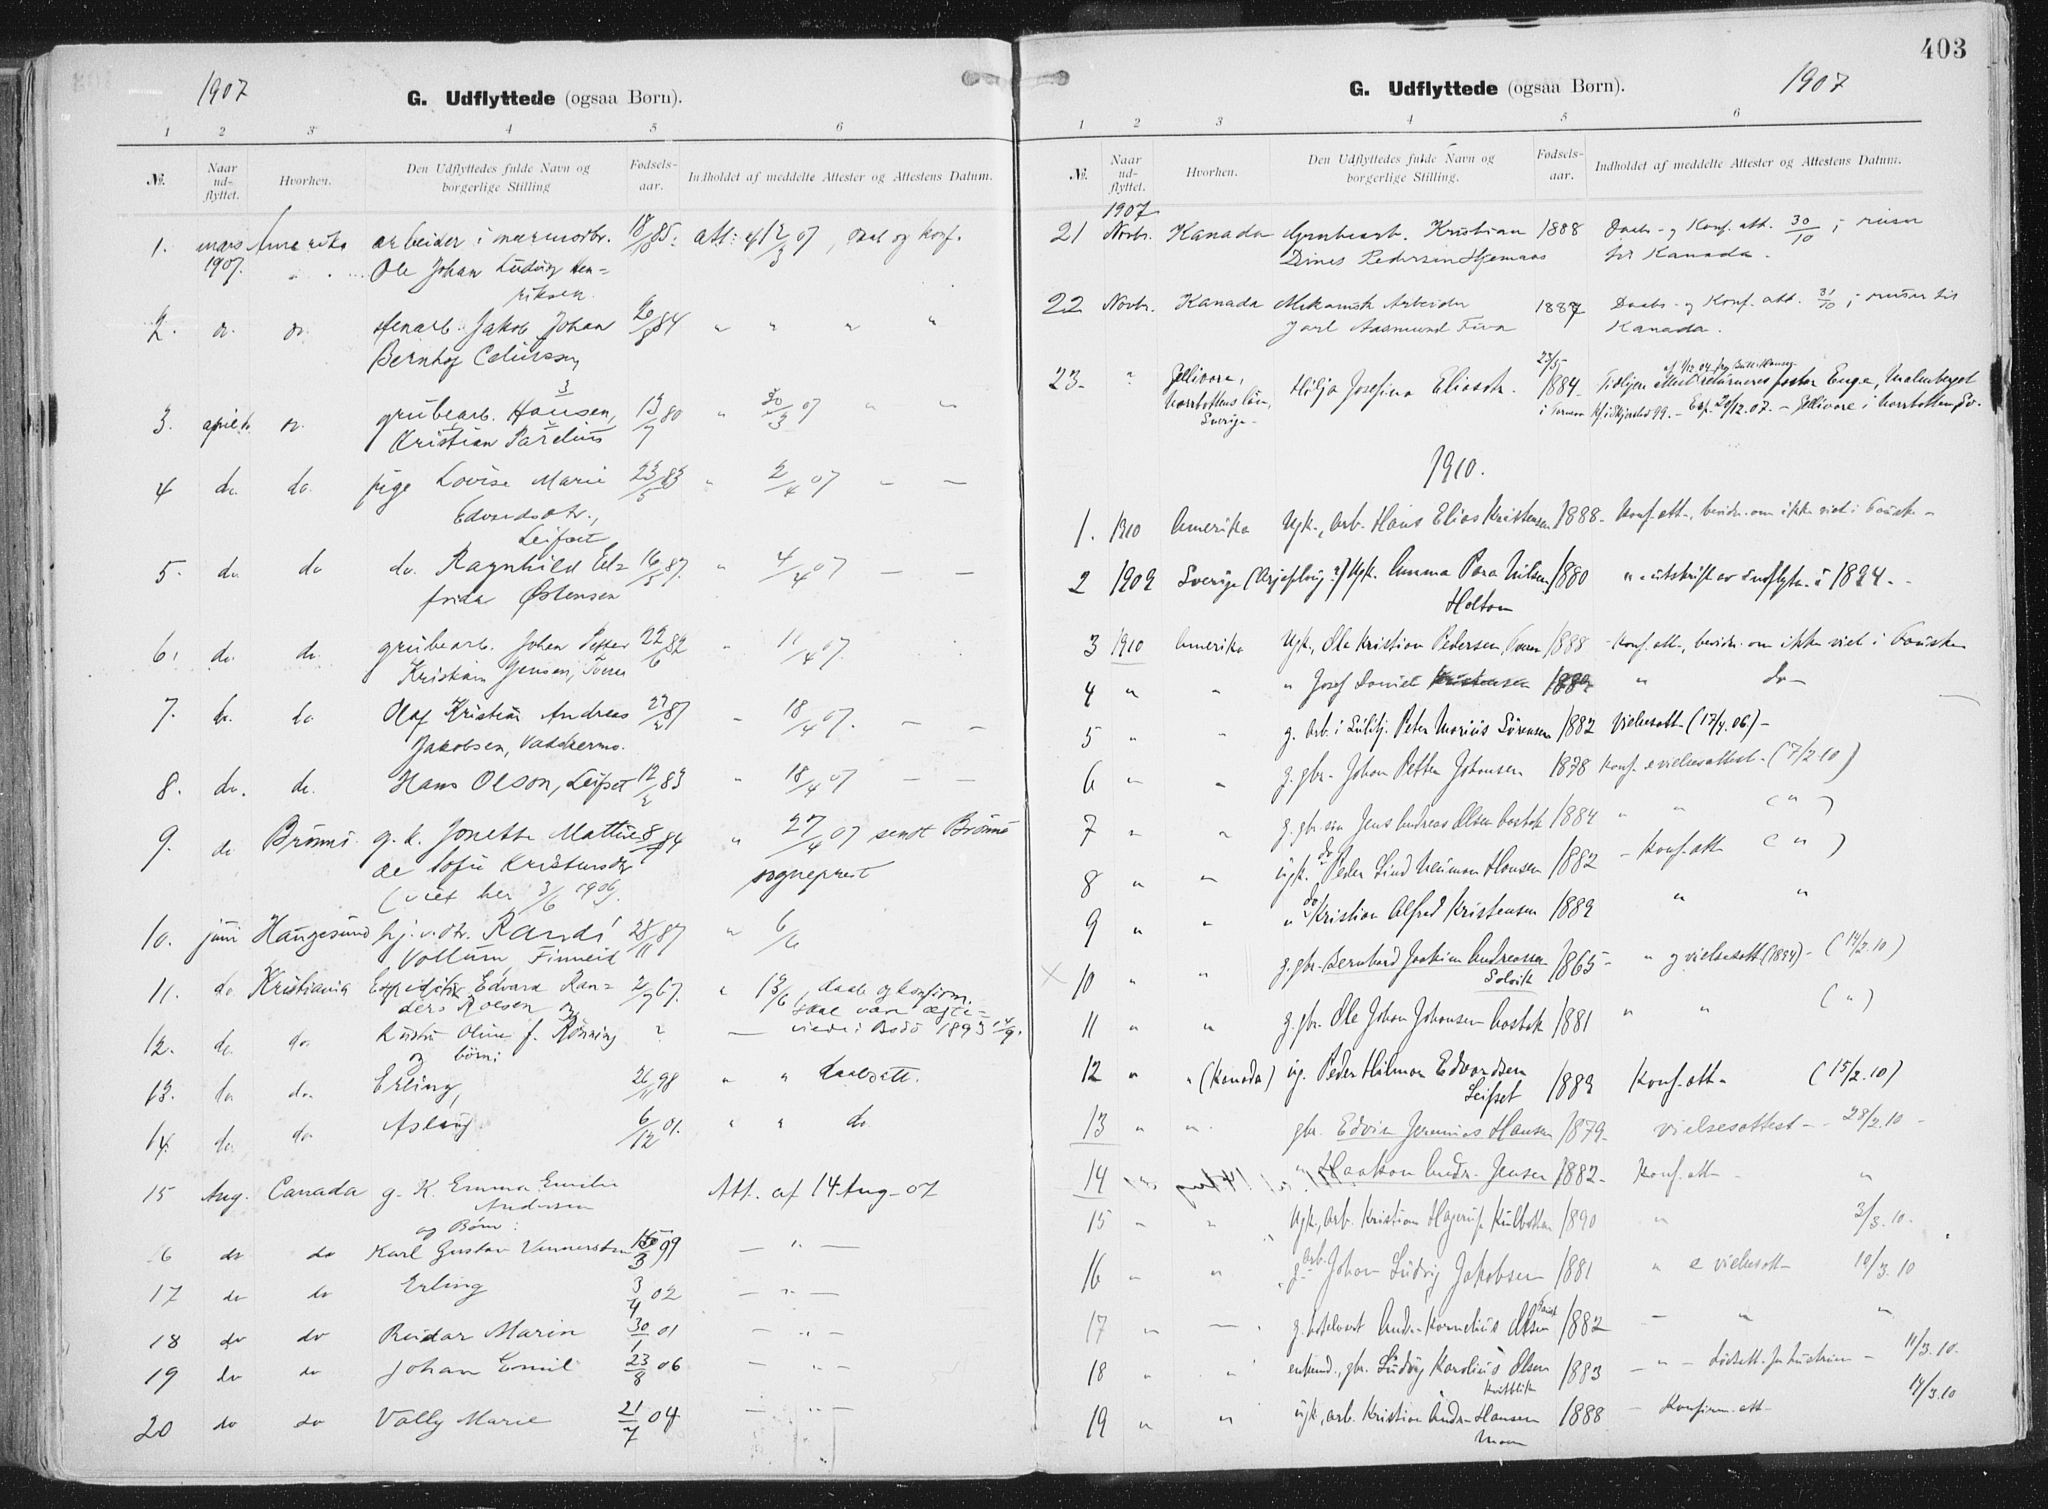 1907
G. Udflyttede (ogsaa Børn).
1 2 3 4 5 6
№. Naar ud-flyttet. Hvorhen. Den Udflyttedes fulde Navn og borgerlige Stilling Fødsels-aar. Indholdet af meddelte Attester og Attestens Datum.
1. mars 1907. Amerika arbeider i marmorbr. 18/85. att: af 12/3 07, daab og konf.
Ole Johan Ludvig Hen-
riksen.
2. do. do. stenarb. Jakob Johan 84 " " " "
Bernhof
3. april do. grubearb. Hansen, 13/7 80 " 30/3 07 " "
Kristian Parelius
4 do. do. pige Lovise Marie 23/5 83 " 2/4 07 — —
Edvardsdtr.,
Leifset
5. do do do. Ragnhild El= 16/5 87. " 4/4 07 — —
frida Østensen
6. do. do. grubearb. Johan Petter 22/6 82 " 11/4 07.
Kristian Jensen,
7. do. do Olaf Kristian Andreas 27/2 87 " 18/4 07. — —
Jakobsen,
8. do. do. Hans Olson, Leifset 12/2 83 " 18/4 07 — —
9. do Brønnø. g. k. Jonette Mathil 84 " 27/4 07 sendt Brønnø
de Sofie Kristensdtr sogneprest
(viet her 3/6 1906).
10. juni Haugesund Randi 28/11 87 " 6/6
Vollum Finneid
11. do Kristiania Expeditør Edvard Ran= 2/7 67. " 13/6 daab og konfirm.
ders Roesen og samt
12. do. do. Oline f. Rønning ? — viede i Bodø 1893
og børn:
13. do do. Erling, 26/11 98 " " daabsatt.
14. do do Aslaug 6/12 01. " " do.
15 Aug. Canada g. K. Emma Emilie Att. af 14 Aug - 07
Andersen
og Børn:
6 do do Karl Gustav 3 99 — " —
17 do do Erling 3/4 02 — " —
18 do do Reidar Marin 30/1 01 — " —
19 do do Johan Emil 23/8 06 — " —
20 do do Vally Marie 21/7 04 — " —
403
G. Udflyttede (ogsaa Børn).
1907
1 2 3 4 5 6
№. Naar ud-flyttet. Hvorhen. Den Udflyttedes fulde Navn og borgerlige Stilling. Fødsels-aar. Indholdet af meddelte Attester og Attestens Datum.
1907
21 Novbr. Kanada Grubearb. Kristian 1888 Daabs- og Konf. att. 30/10; reiser
Dines Pedersen Hjemaas til Kanada.
22 Novbr. Kanada Mekanisk Arbeider 1887 Daabs- og Konf. att. 31/10; reiser til
Jarl Aasmund Kanada.
23. " Gellivare, Norrbottens Län, Sverige. Hilja Josefina Eliasdtr. 23/5 1884. Tidligere attest returneres pastor Enge, Malmberget
Exp. 20/12.07. — Gellivare i Norrbotten, Sv.
1910.
1. 1910 Amerika Ugk., arb. Hans Elias Kristensen 1888 - Konf. att., bevidn. om ikke viet i Fauske -
2 1909 Sverige (Arjeploug?) Ugk. Anna Nilsen 1880 " utskrift av indflytn. i 1894.
Holton
3 1910 Amerika Ugk. Ole Kristian Pedersen 1888 - Konf. att., bevidn. om ikke viet i Fauske
4 " " " Josef Daniel Kristensen " do -
5 " " g. arb. i Sulitj. Peter Marius Sørensen 1882 Vielsesatt- (17/4.06) -
6 " " g. gbr. Johan Petter Johansen 1878 Konf. & vielsesattest. (7/2.10)
7 " " g. gbr. søn Jens Andreas Olsen 1884 " " (")
8 " " ugk. do Peder Lind Neuman Hansen 1882 - Konf. att (")
9 " " " do Kristian Alfred Kristensen 1889 " "
10 " " g. gbr. Bernhard Joakim Andreassen 1865 - " og vielsesatt (1894) - (14/2.10)
Solvik
11 " " g. gbr. Ole Johan Johansen 1881 " " (")
12 " " (Kanada) ug. Peder Hilmar Edvardsen 1889 Konf. att. (15/2.10)
Leifset
13 " " gbr. Edvin Jeremias Hansen 1879 - vielsesattest - 28/2.10 -
14 " Haakon Andr. Jensen 1882 - Konf. att - "
15 - " Ugk., arb. Kristian Hagerup 1890 " 3/3.10.
16 " " g. arb. Johan Ludvig Jakobsen 1881 " & vielsesatt - 10/3.10
17 " — " g. Andr. Kornelius Olsen 1882 — " "
18 " " enkemd., gbr. Ludvig Karolius Olsen 1883 — " — dødsatt. for hustruen — 11/3.10.
Kvitblik
19 " " ugk., arb. Kristian Andr. Hansen 1888 - Konfirm. att - 14/3.10